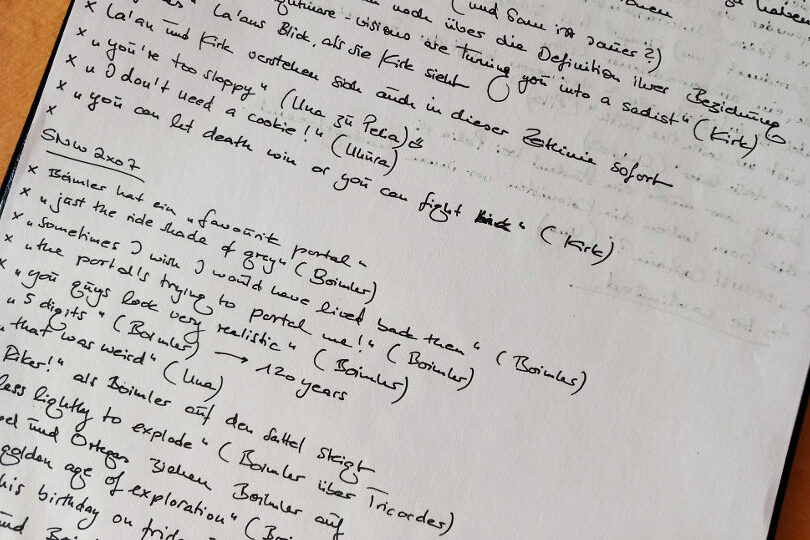 und Sam ist sauer?)
noch über die Definition ihrer Beziehung
nightmare-visions are turning you into a sadist" (Kirk)
La'ans Blick, als sie Kirk sieht
x La'an und Kirk verstehen sich auch in dieser Zeitlinie sofort
x "you're too sloppy" (Una zu Pelia)
x "I don't need a cookie!" (Uhura)
x "you can let death win or you can fight" (Kirk)
x
SNW 2x07
x Boimler hat ein "favourite portal"
x "just the ride shade of grey" (Boimler)
x "sometimes I wish I would have lived back then" (Boimler)
x "the portal's trying to portal me!" (Boimler)
x "you guys look very realistic" (Boimler)
"5 digits" (Boimler) → 120 years
"that was weird" (Una)
Riker!" als Boimler auf den Sattel steigt
less lightly to explode" (Boimler über Tricorder)
und Ortegas ziehen Boimler auf
golden age of exploration" (Boi
his birthday on frid
und Boi